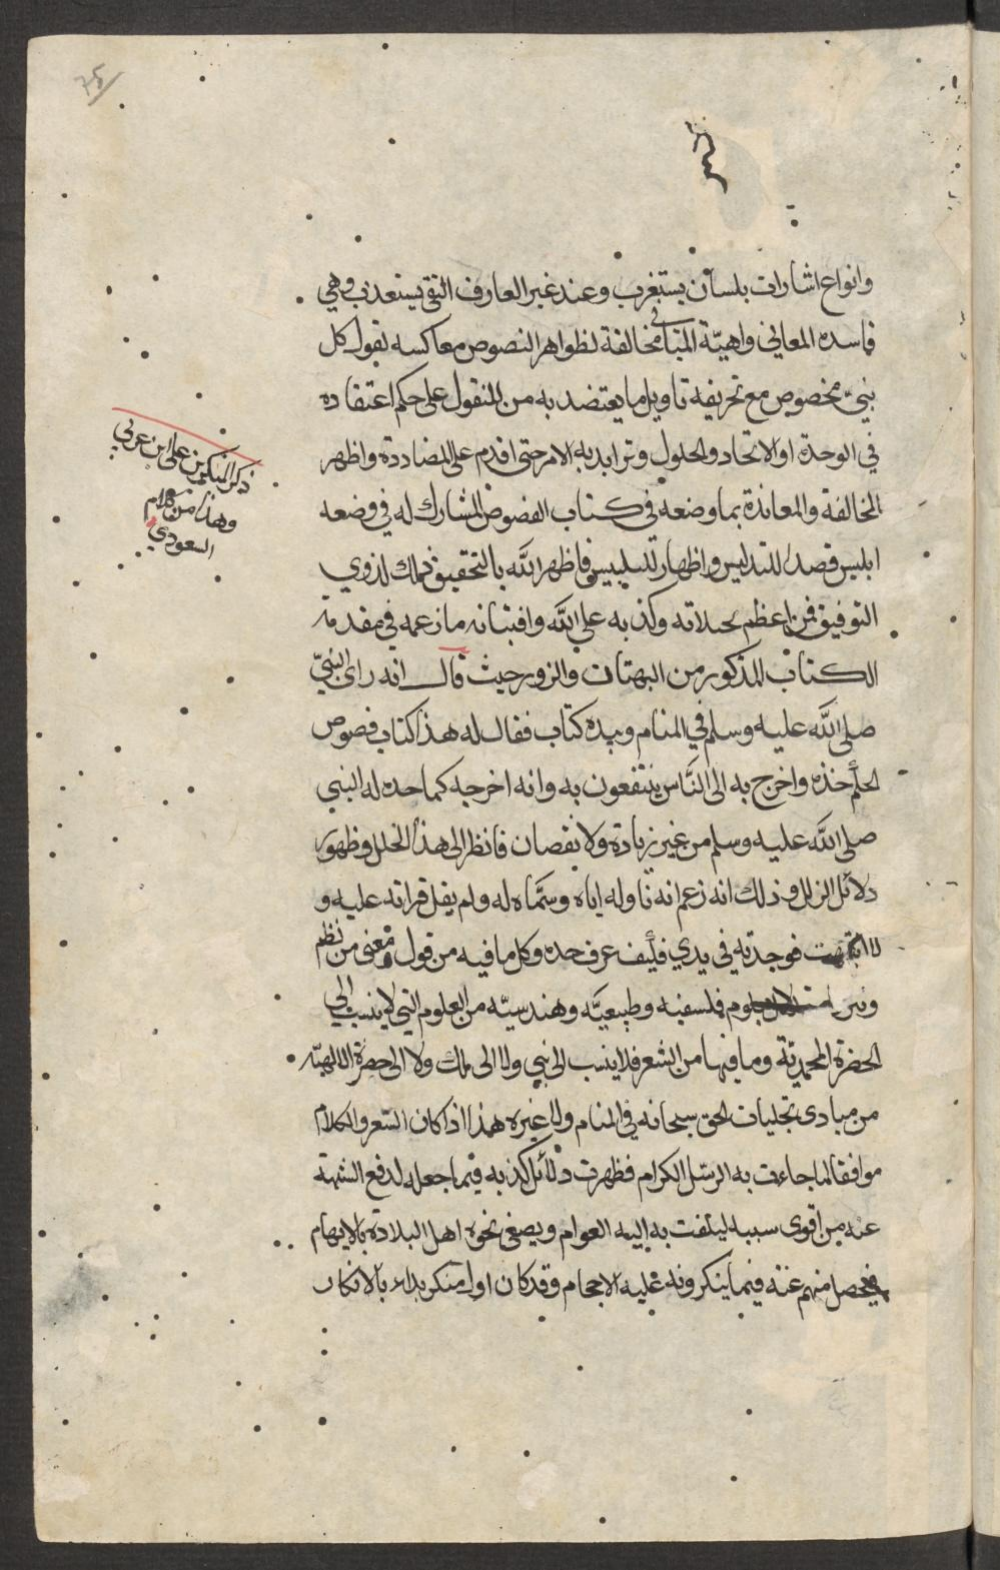 وانواع اشارات بلسان يستغرب وعند غير العارف التقى يستعذب وهي
فاسدة المعاني واهية المباني مخالفة لظواهر النصوص معاكسة لقول كل
نبيّ مخصوص مع تحريفه تاويل ما يعتضد به من المنقول على حكم اعتقاده
في الوحدة او الاتحاد والحلول وتزايد به الامر حتى اقدم على المضاددة واظهر
المخالفة والمعاندة بما وضعه في كتاب الفصوص المشارك له في وضعه
ابليس قصدا للتدليس واظهار التلبيس فاظهر الله بالتحقيق ذلك لذوي
التوفيق فمن اعظم وكذبه على الله وافتتانه ما زعمه في مقدمة
الكتاب المذكور من البهتان والزور حيث قال انه راى النبيّ
صلى الله عليه وسلم في المنام وبيده كتاب فقال له هذا كتاب فصوص
الحكم خذه واخرج به الى النّاس ينتفعون به وانه اخرجه كما حده له النبي
صلى الله عليه وسلم من غير زيادة ولا نقصان فانظر الى هذا الخلل وظهور
دلائل الزلل وذلك انه زعم انه ناوله اياه وسمّاه له ولم يقل قراته عليه و
لا انتبهت فوجدته في يدي فكيف عرف حده وكل ما فيه من قول ومعنى من نظم
ونثر فلسفيه وطبيعيّه وهندسيّه من العلوم التي لا ينسب الى
الحضرة المحمديّة وما فيها من الشعر فلا ينسب الى نبي ولا الى ملك ولا الى حضرة الالهيّة
من مبادى تجليات الحق سبحانه في المنام ولا غيره هذا اذا كان الشعر والكلام
موافقا لما جاءت به الرسل الكرام فظهرت دلائل كذبه فيما جعله لدفع الشبهة
عنه من اقوى سبب ليلتفت به اليه العوام ويصغى نحوه اهل البلادة بالايهام
فيحصل منهم عنه فيما ينكرونه عليه الاحجام وقد كان اول منكر بدار بالانكار
ذكر المنكرين على ابن عربي
وهذا من كلام
السعودي